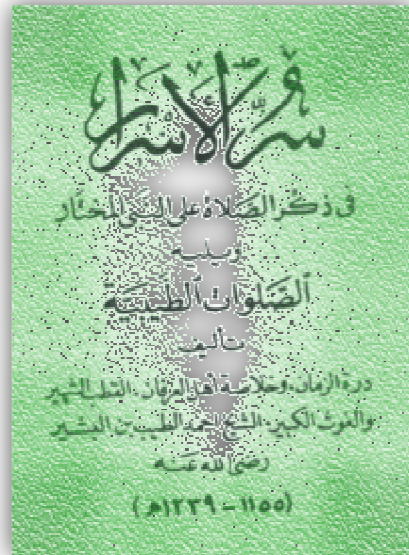 سر الأسرار
في ذكر الصلاة على النبي المختار
ويليه
الصلوات الطيبية
تأليف
درة الزمان وخلاصة أهل العرفان القطب الشهير
والغوث الكبير الشيخ أحمد الطيب بن البشير
رضى الله عنه
(١١٥٥ - ١٢٣٩هـ)